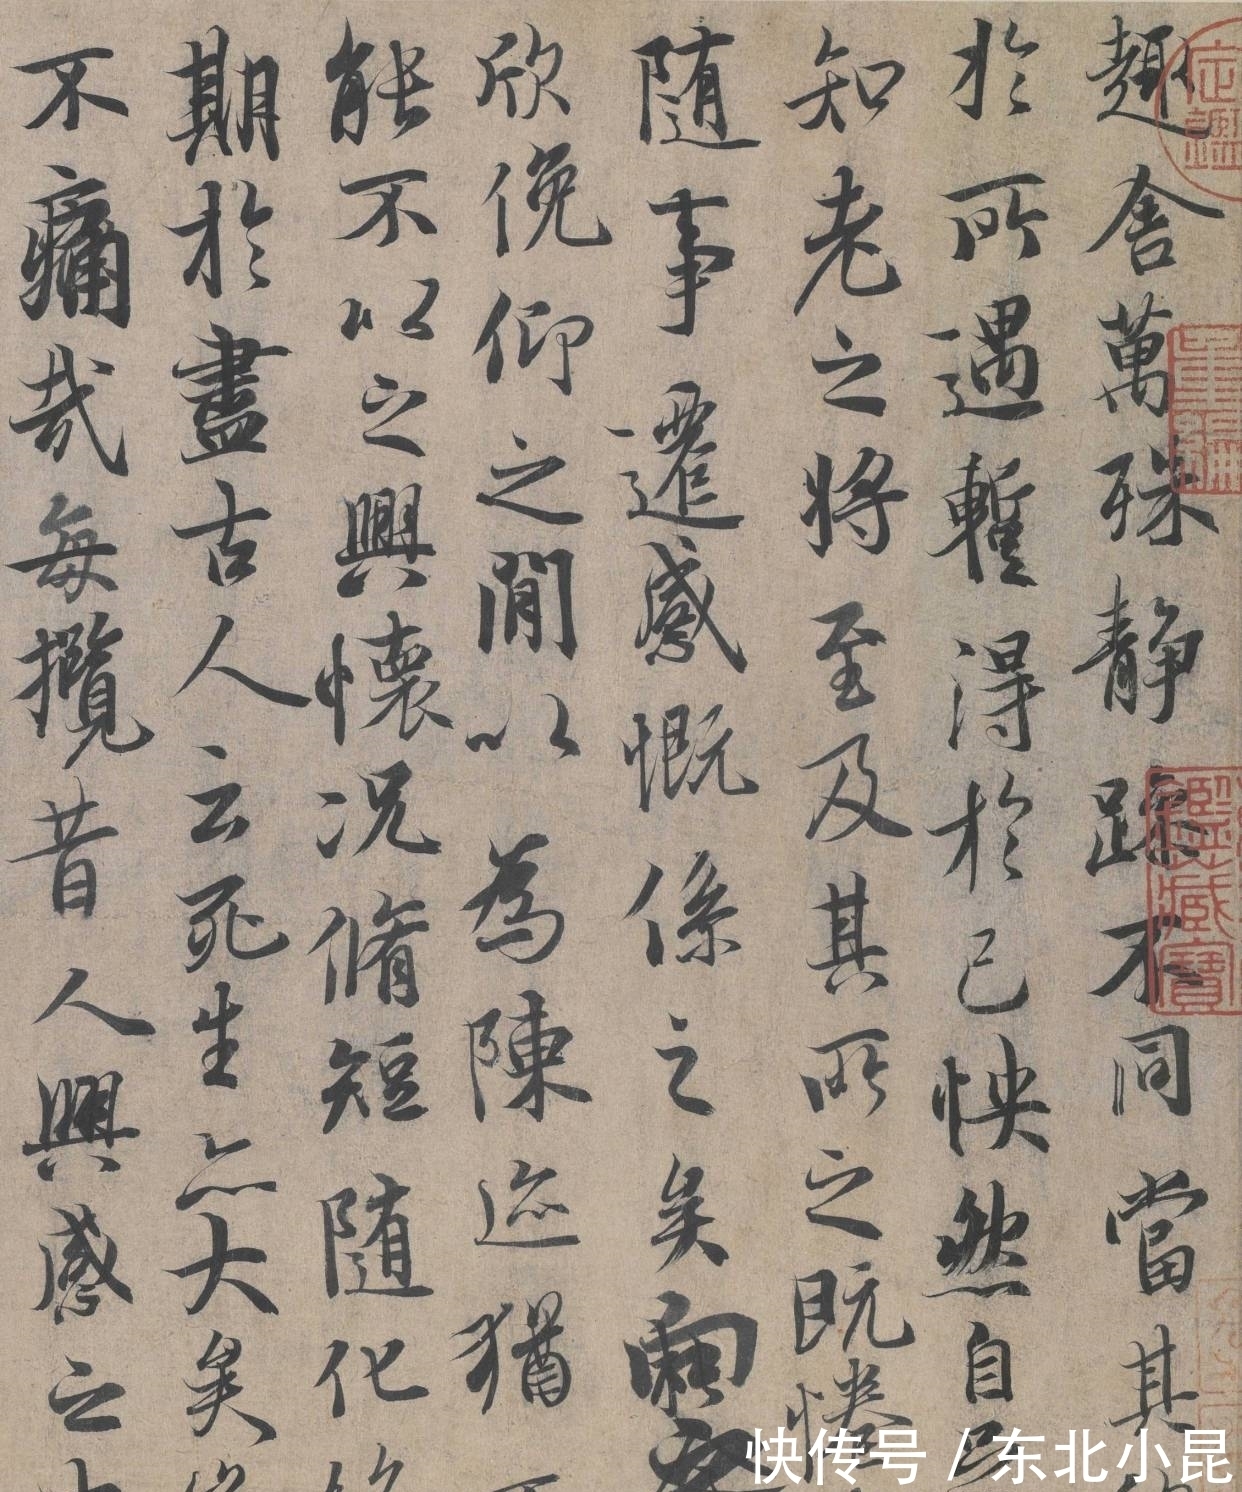 趣舍萬殊静躁不同當其
於所遇蹔得於己怏然自
知老之将至及其所之既惓
随事遷感慨係之矣向之
欣俛仰之閒以為陳迹猶
能不以之興懷况脩短随化
期於盡古人云死生亦大矣
不痛哉每攬昔人興感之
快传号 / 东北小昆